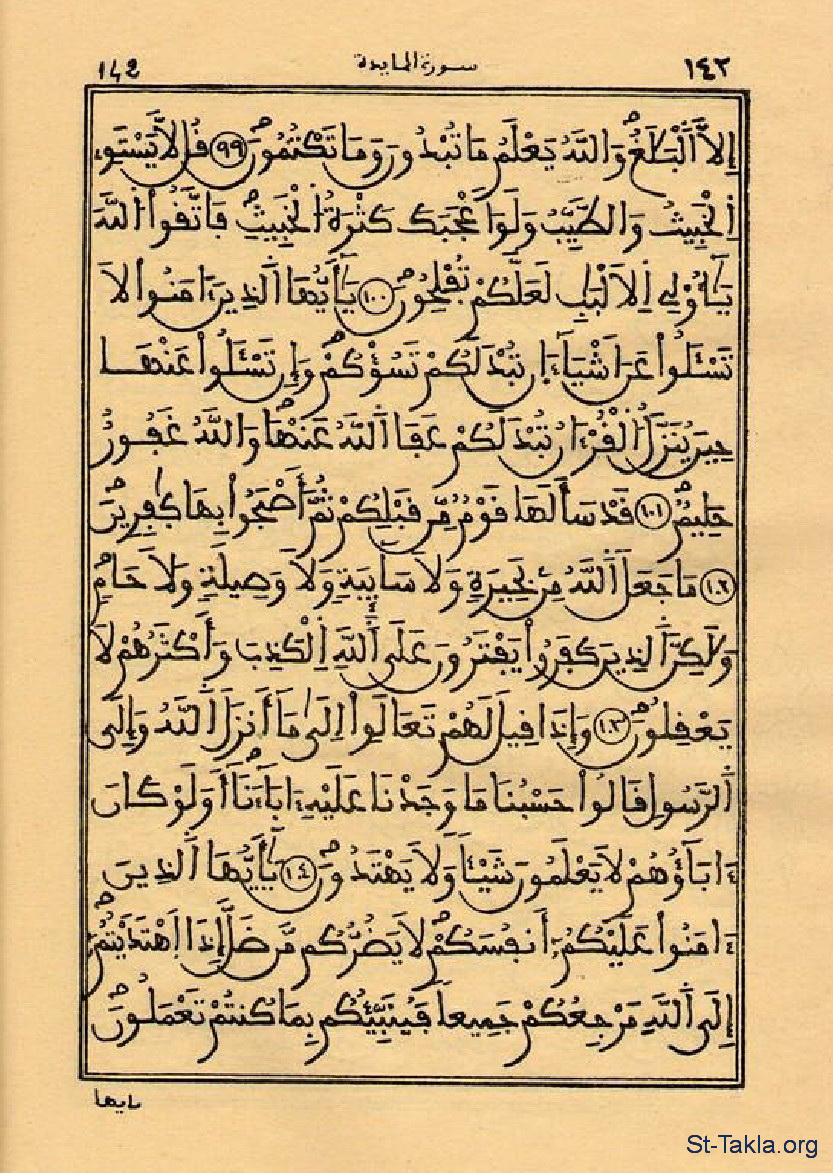 142 سورة المايدة ١٤٢
إِلاَّ اَ۬لْبَلَٰغُۖ وَاللَّهُ يَعْلَمُ مَا تُبْدُونَ وَمَا تَكْتُمُونَۖ ٩٩ قُل لاَّ يَسْتَوِے
اِ۬لْخَبِيثُ وَالطَّيِّبُ وَلَوَ اَعْجَبَكَ كَثْرَةُ اُ۬لْخَبِيثِۖ فَاتَّقُواْ اُ۬للَّهَ
يَٰٓأُوْلِے اِ۬لَالْبَٰبِ لَعَلَّكُمْ تُفْلِحُونَۖ ١٠٠ يَٰٓأَيُّهَا اَ۬لذِينَ ءَامَنُواْ لاَ
تَسْـَٔلُواْ عَنَ اَشْيَآءَ ان تُبْدَ لَكُمْ تَسُؤْكُمْۖ وَإِن تَسْـَٔلُواْ عَنْهَا
حِينَ يُنَزَّلُ اُ۬لْقُرْءَانُ تُبْدَ لَكُمْ عَفَا اَ۬للَّهُ عَنْهَاۖ وَاللَّهُ غَفُورٌ
حَلِيمٌۖ ١٠١ قَدْ سَأَلَهَا قَوْمٌ مِّن قَبْلِكُمْ ثُمَّ أَصْبَحُواْ بِهَا كَٰفِرِينَۖ
١٠٢ مَا جَعَلَ اَ۬للَّهُ مِنۢ بَحِيرَةٍ وَلاَ سَآيِبَةٍ وَلاَ وَصِيلَةٍ وَلاَ حَامٍ
وَلَٰكِنَّ اَ۬لذِينَ كَفَرُواْ يَفْتَرُونَ عَلَي اَ۬للَّهِ اِ۬لْكَذِبَ وَأَكْثَرُهُمْ لاَ
يَعْقِلُونَۖ ١٠٣ وَإِذَا قِيلَ لَهُمْ تَعَالَوِاْ اِلَيٰ مَآ أَنزَلَ اَ۬للَّهُ وَإِلَي
اَ۬لرَّسُولِ قَالُواْ حَسْبُنَا مَا وَجَدْنَا عَلَيْهِ ءَابَآءَنَآ أَوَلَوْ كَانَ
ءَابَآؤُهُمْ لاَ يَعْلَمُونَ شَيْـٔاً وَلاَ يَهْتَدُونَۖ ١٤ يَٰٓأَيُّهَا اَ۬لذِينَ
ءَامَنُواْ عَلَيْكُمُۥٓ أَنفُسَكُمْۖ لاَ يَضُرُّكُم مَّن ضَلَّ إِذَا اَ۪هْتَدَيْتُمُۥٓۖ
إِلَي اَ۬للَّهِ مَرْجِعُكُمْ جَمِيعاً فَيُنَبِّئُكُم بِمَا كُنتُمْ تَعْمَلُونَۖ
يايها
St-Takla.org